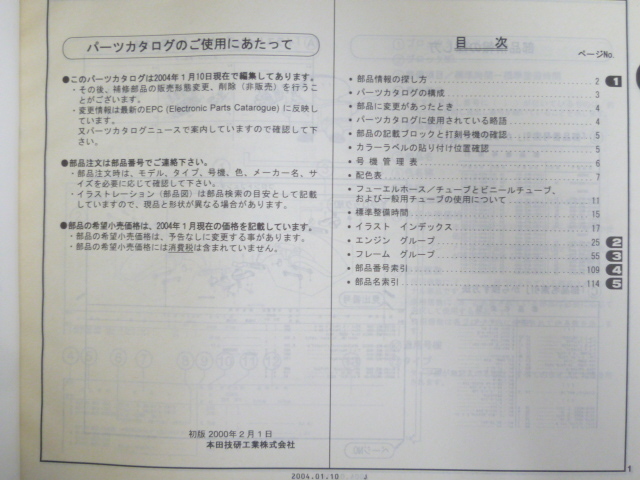 パーツカタログのご使用にあたって
●このパーツカタログは2004年1月10日現在で編集してあります。
・その後、補修部品の販売形態変更、削除（非販売）を行うこ
とがございます。
・変更情報は最新のEPC (Electronic Parts Catarogue) に反映し
ています。
又パーツカタログニュースで案内していますので確認して下
さい。
●部品注文は部品番号でご連絡下さい。
・部品注文時は、モデル、タイプ、号機、色、メーカー名、サ
イズを必要に応じて確認して下さい。
・イラストレーション（部品図）は部品検索の目安として記載
していますので、現品と形状が異なる場合があります。
●部品の希望小売価格は、2004年1月現在の価格を記載しています。
・部品の希望小売価格は、予告なしに変更する事があります。
・部品の希望小売価格には消費税は含まれていません。
初版 2000年2月1日
本田技研工業株式会社
目 次
ページNo.
・部品情報の探し方 2 1
・パーツカタログの構成 3
・部品に変更があったとき 4
・パーツカタログに使用されている略語 4
・部品の記載ブロックと打刻号機の確認 5
・カラーラベルの貼り付け位置確認 5
・号機管理表 6
・配色表 7
・フューエルホース／チューブとビニールチューブ、
および一般用チューブの使用について 11
・標準整備時間 15
・イラスト インデックス 17
・エンジン グループ 25 2
・フレーム グループ 55 3
・部品番号索引 109 4
・部品名索引 114 5
1
2004.01.10